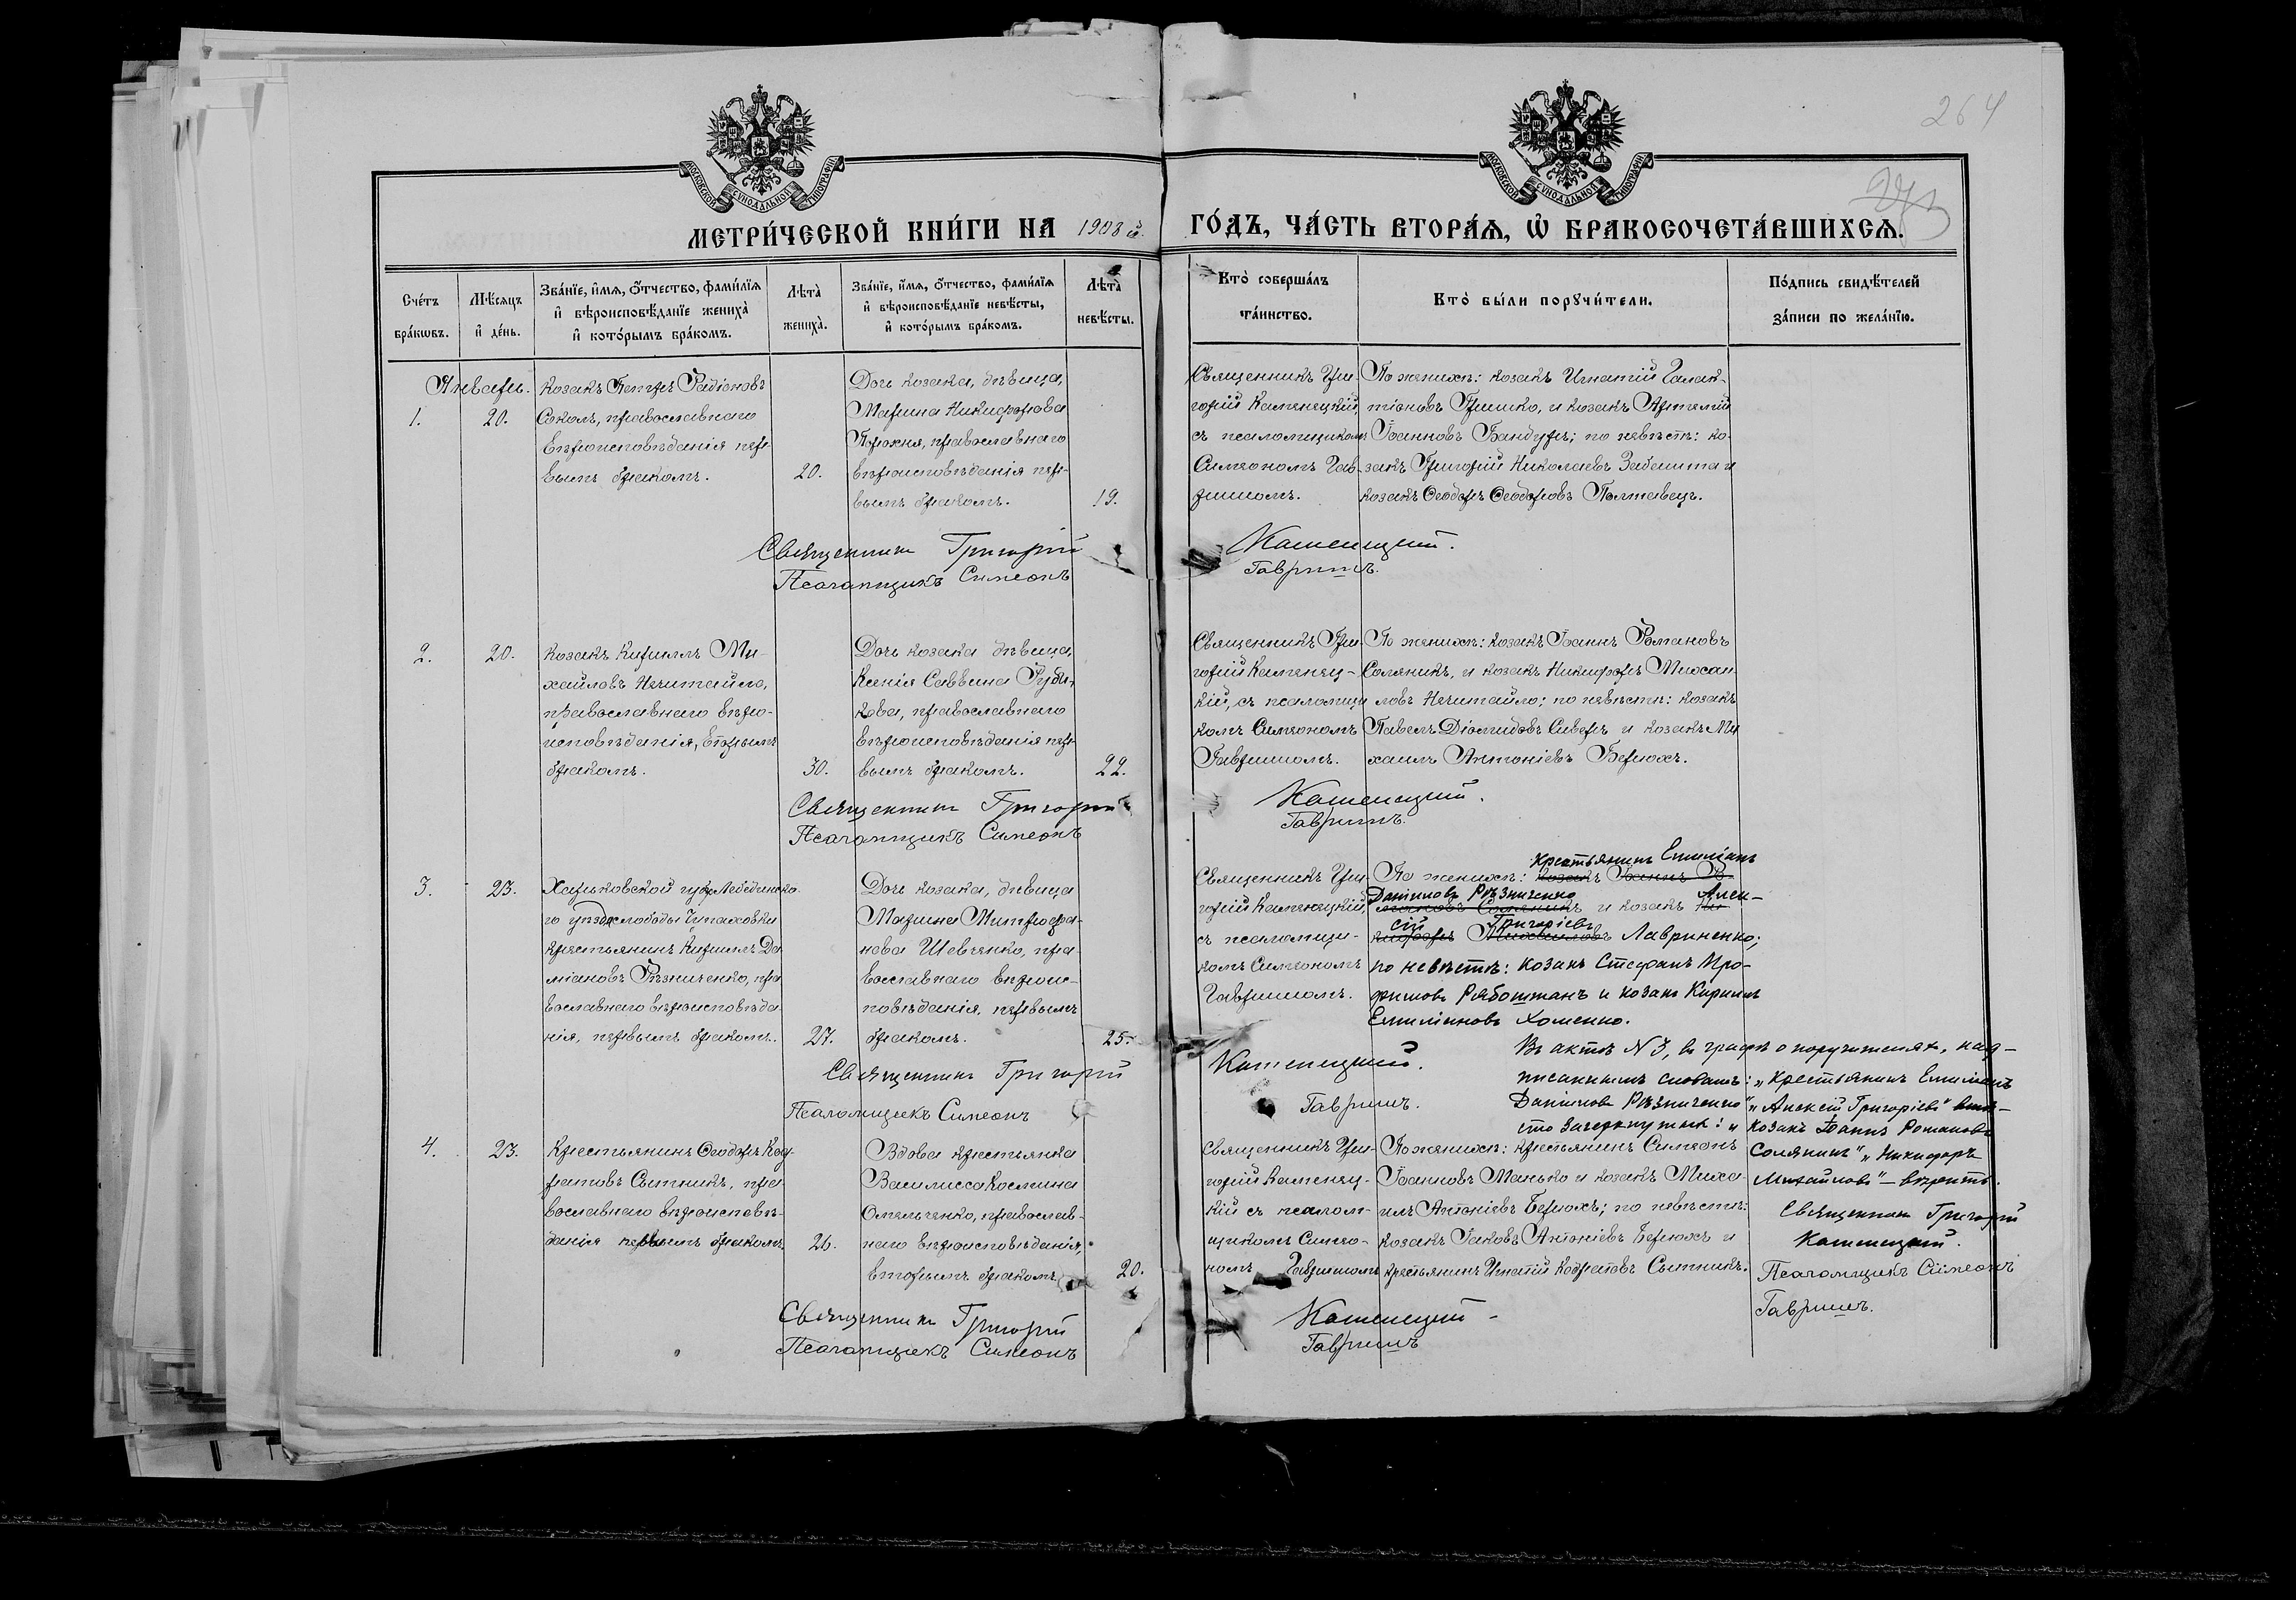 264
МОСКОВСКОЙ СѴНОДАЛЬНОЙ ТИПОГРАФІИ
МОСКОВСКОЙ СѴНОДАЛЬНОЙ ТИПОГРАФІИ
МЕТРИ́ЧЕСКОЙ КНИ́ГИ НА 1908 й.
ГО́ДЪ, ЧА́СТЬ ВТОРА́Я, Ѡ БРАКОСОЧЕТА́ВШИХСЯ.
Сче́тъ бра́кѡвъ.
Мѣ́сяцъ и҆ де́нь.
Зва́нїе, и҆́мя, ѻ҆́тчество, фами́лїя
и҆ вѣроисповѣ́данїе жениха̀
и҆ кото́рымъ бра́комъ.
Лѣта̀ жениха̀.
Зва́нїе, и҆́мя, ѻ҆́тчество, фами́лїя
и҆ вѣроисповѣ́данїе невѣ́сты,
и҆ кото́рымъ бра́комъ.
Лѣта̀ невѣ́сты.
Кто̀ соверша́лъ
та́инство.
Кто̀ бы́ли порꙋчи́тели.
По́дпись свидѣ́телей
за́писи по жела́нїю.
Январь.
1.
20.
козакъ Петръ Радіоновъ
Соколъ, православнаго
вѣроисповѣданія пер-
вымъ бракомъ.
20.
Дочь козака, дѣвица,
Марина Никифорова
Порохня, православнаго
вѣроисповѣданія пер-
вымъ бракомъ.
19.
Священникъ Гри-
горій Каменецкій,
съ псаломщикомъ
Симеономъ Гав-
ришомъ.
По женихѣ: козакъ Игнатій Галак-
тіоновъ Гришко, и козакъ Артемій
Іоанновъ Бандуръ; по невѣстѣ: ко-
закъ Григорій Николаевъ Забашта и
козакъ Ѳеодоръ Ѳеодоровъ Полтавецъ.
Священникъ Григорій Каменецкій.
Псаломщикъ Симеонъ Гавришъ.
2.
20.
козакъ Кириллъ Ми-
хайловъ Нечитайло,
православнаго вѣро-
исповѣданія, вторымъ
бракомъ.
30.
Дочь козака дѣвица
Ксенія Саввина Руди-
кова, православнаго
вѣроисповѣданія пер-
вымъ бракомъ.
22.
Священникъ Гри-
горій Каменец-
кій, съ псаломщи
комъ Симеономъ
Гавришомъ.
По женихѣ: козакъ Іоаннъ Романовъ
Соляникъ, и козакъ Никифоръ Михаи-
ловъ Нечитайло; по невѣстѣ: козакъ
Павелъ Діомидовъ Сиверъ и козакъ Ми
хаилъ Антоніевъ Берюхъ.
Священникъ Григорій Каменецкій.
Псаломщикъ Симеонъ Гавришъ.
3.
23.
Харьковской губ. Лебединска-
го уѣзда слободы Чупаховки
крестьянинъ Кириллъ Да
міановъ Рѣзниченко, пра
вославнаго вѣроисповѣда
нія, первымъ бракомъ.
27.
Дочь козака, дѣвица
Марина Митрофа-
нова Шевченко, пра
вославнаго вѣроис-
повѣданія, первымъ
бракомъ.
25.
Священникъ Гри-
горій Каменецкій,
съ псаломщи-
комъ Симеономъ
Гавришомъ.
крестьянинъ Емиліанъ
По женихѣ: козакъ Іоаннъ Ро
Даніиловъ Рѣзниченко Алек-
мановъ Соляникъ и козакъ Ни
сій Григоріевъ
кифоръ Михаиловъ Лавриненко;
по невѣстѣ: козакъ Стефанъ Тро-
фимовъ Рябоштанъ и козакъ Кириллъ
Емиліановъ Хоменко.
Въ актѣ № 3, въ графѣ о поручителях, над-
писаннымъ словамъ: „крестьянинъ Емиліанъ
Даніиловъ Рѣзниченко" „Алексій Григоріевъ" вмѣ-
сто зачеркнутых: „козакъ Іоаннъ Романовъ
Соляникъ" „Никифоръ
Михайловъ" – вѣрить.
Священникъ Григорій
Каменецкій.
Псаломщикъ Симеонъ
Гавришъ.
Священникъ Григорій Каменецкій.
Псаломщикъ Симеонъ Гавришъ.
4.
23.
Крестьянинъ Ѳеодоръ Код-
ратовъ Сытникъ, пра-
вославнаго вѣроисповѣ-
данія первымъ бракомъ.
26.
Вдова крестьянка
Василисса Космина
Омельченко, православ-
наго вѣроисповѣданія,
вторымъ бракомъ.
20.
Священникъ Гри-
горій Каменец-
кій съ псалом-
щикомъ Симео-
номъ Гавришомъ
По женихѣ: крестьянинъ Симеонъ
Іоанновъ Манько и козакъ Миха-
илъ Антоніевъ Берюхъ; по невѣстѣ:
козакъ Іаковъ Антоніевъ Берюхъ и
крестьянинъ Игнатій Кодратовъ Сытникъ.
Священникъ Григорій Каменецкій
Псаломщикъ Симеонъ Гавришъ